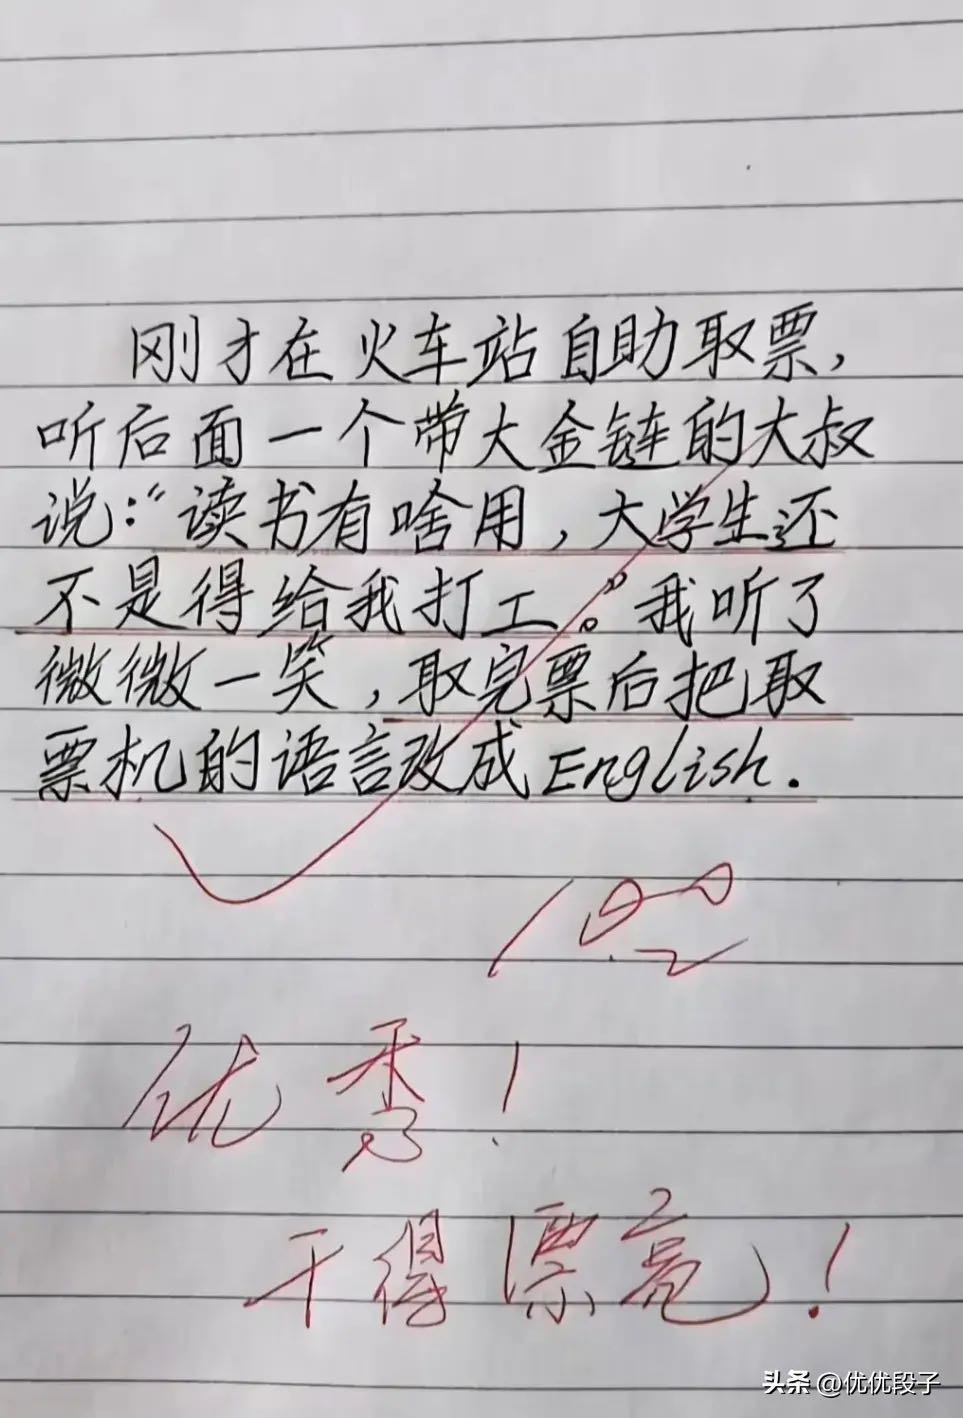 刚才在火车站自助取票，
听后面一个带大金链的大叔
说：“读书有啥用，大学生还
不是得给我打工。”我听了
微微一笑，取完票后把取
票机的语言改成English.
100
优秀！
干得漂亮！
头条 @优优段子